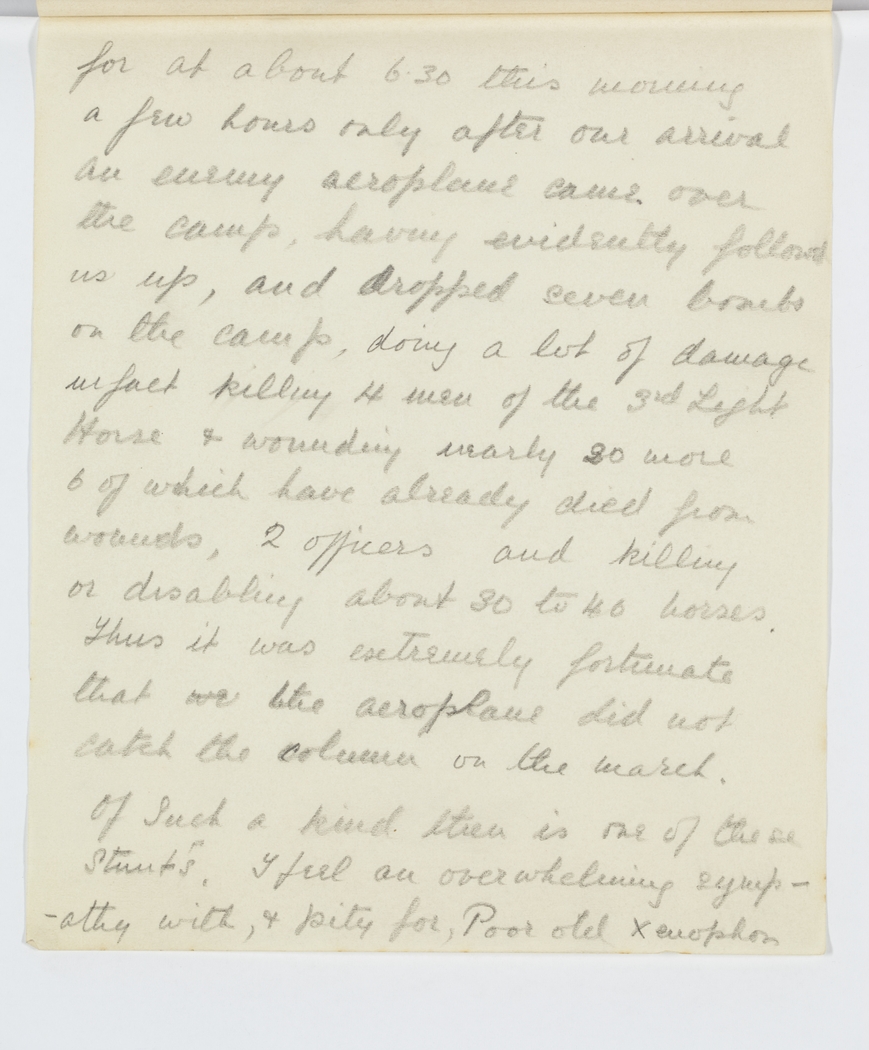 for at about 6.30 this morning
a few hours only after our arrival
an enemy aeroplane came over
the camp, having evidently followed
us up, and dropped seven bombs
on the camp, doing a lot of damage
in fact killing 4 men of the 3rd Light
Horse & wounding nearly 20 more
6 of which have already died from
wounds, 2 officers and killing
or disabling about 30 to 40 horses.
Thus it was extremely fortunate
that we the aeroplane did not
catch the column on the march.
Of Such a kind then is one of these
Stunts". I feel an overwhelming symp-
-athy with, & pity for, Poor old Xenophon